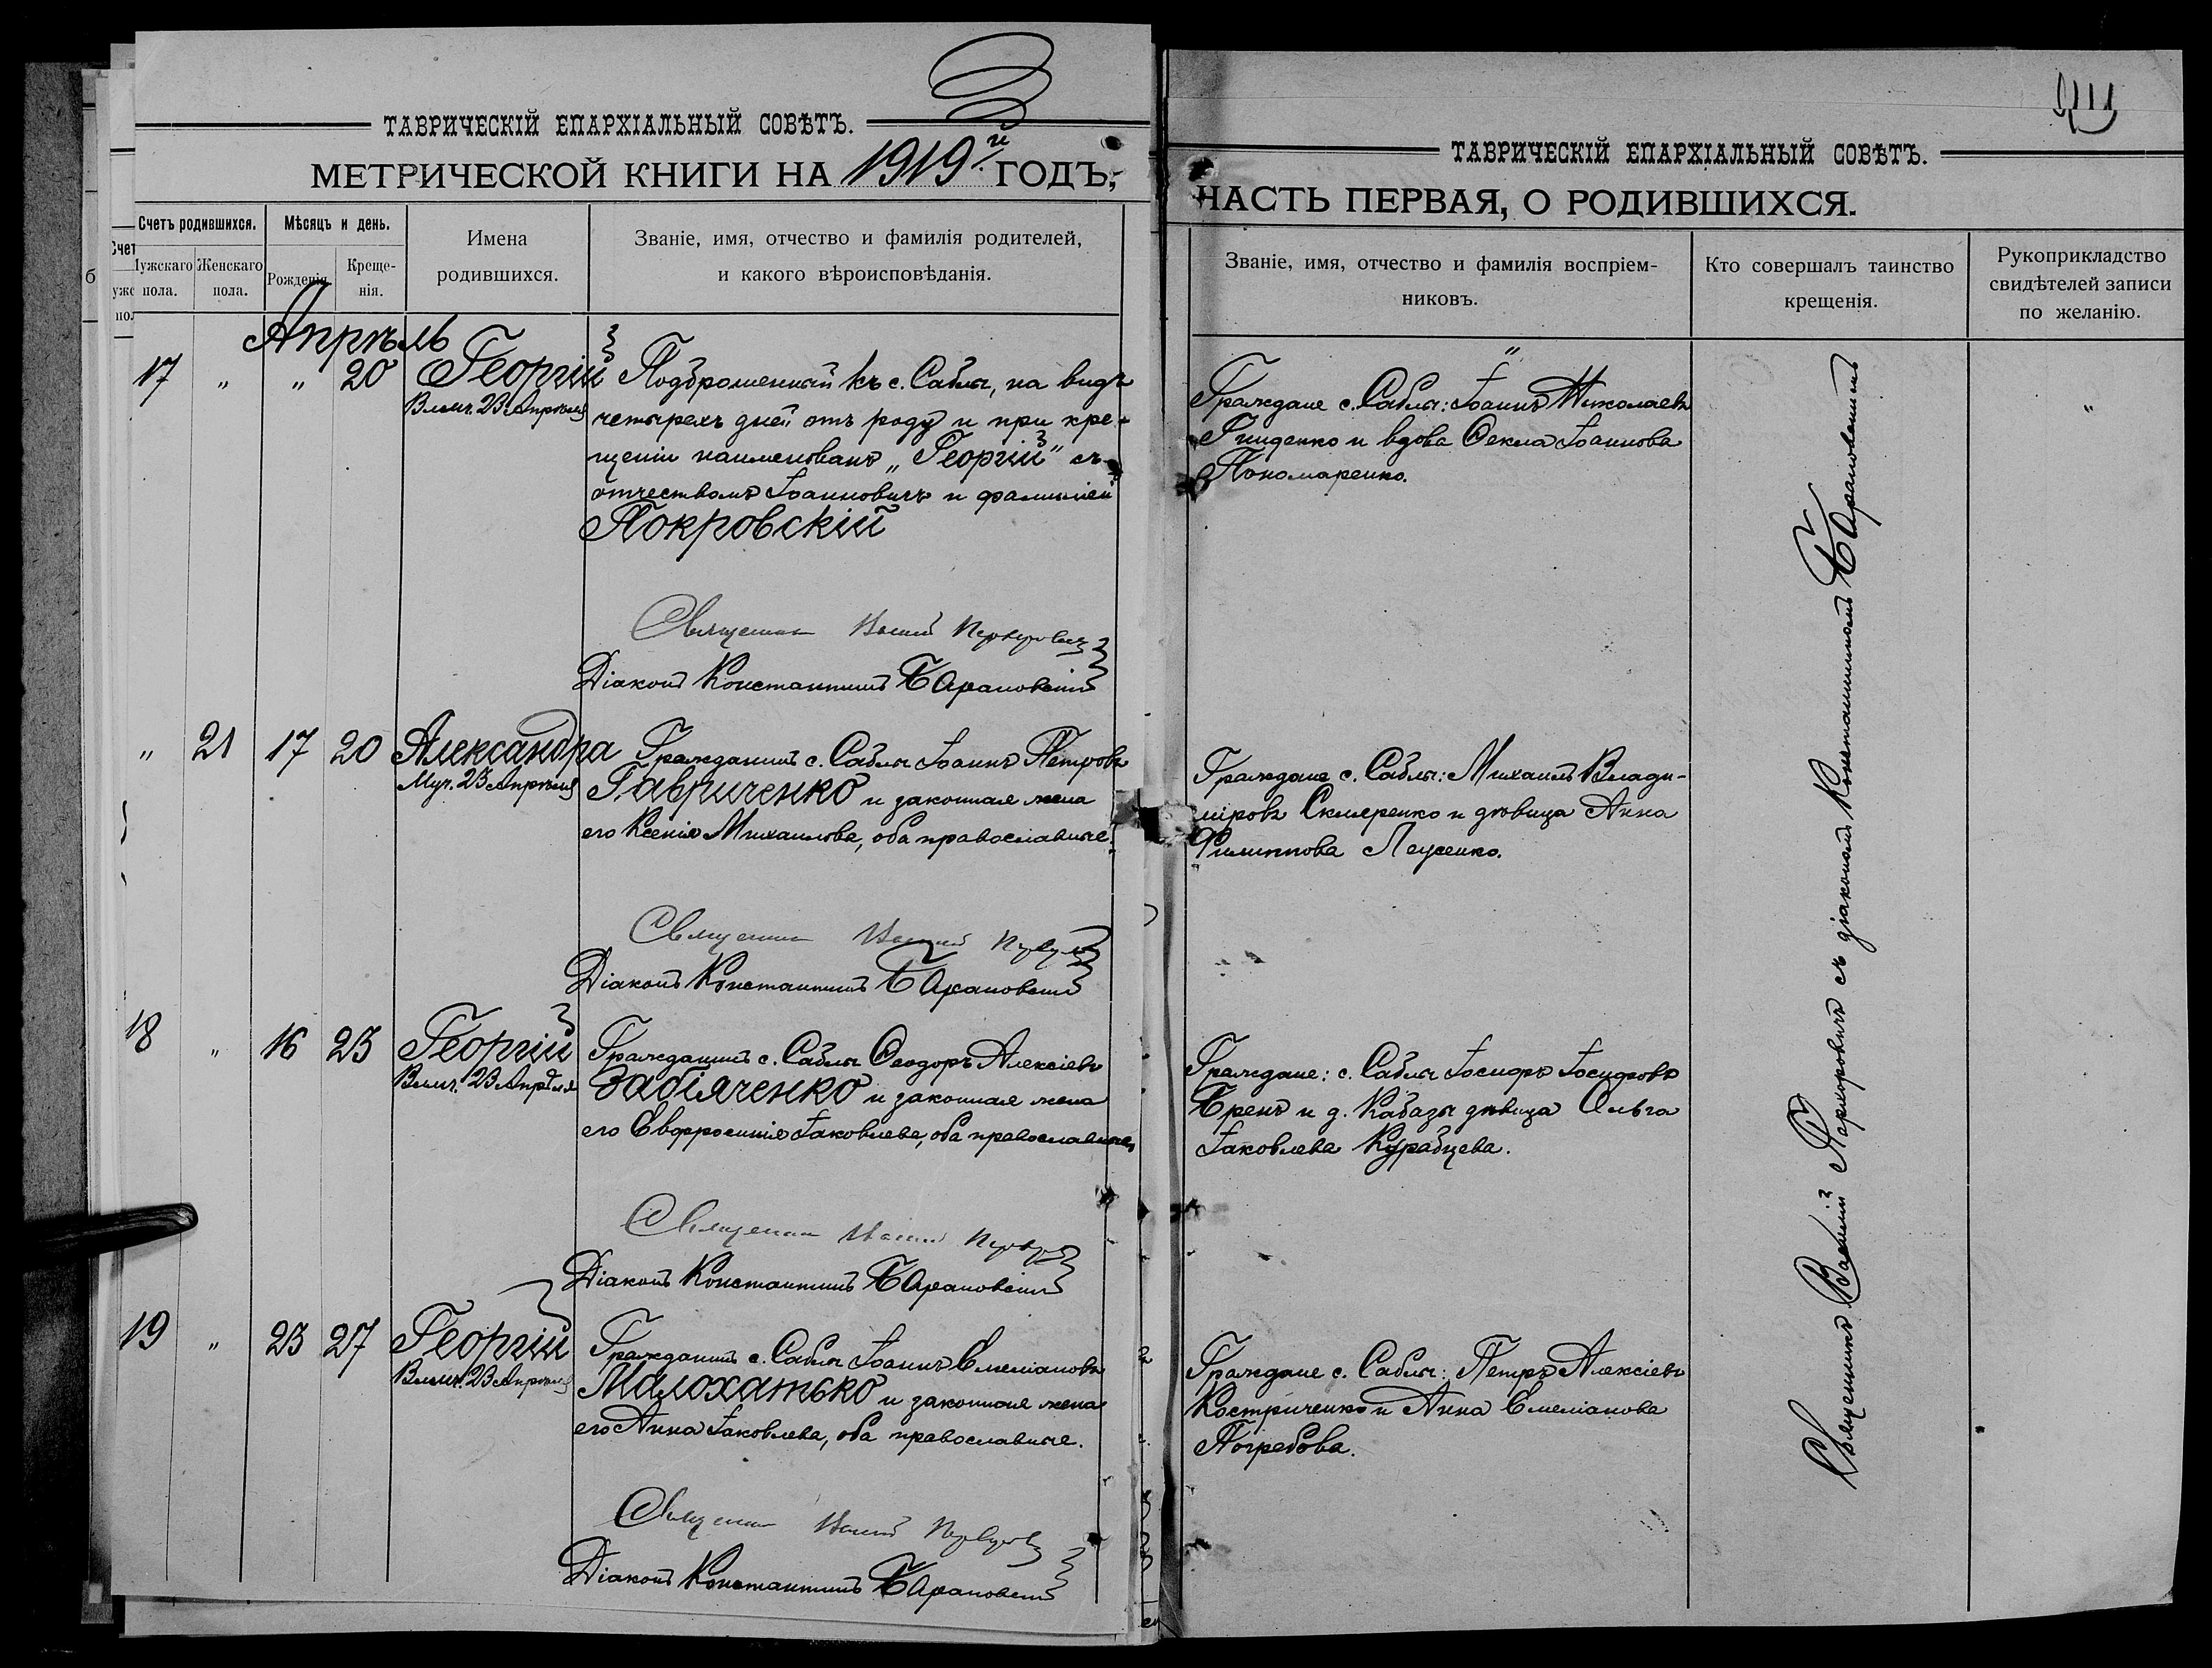 ТАВРИЧЕСКІЙ ЕПАРХІАЛЬНЫЙ СОВѢТЪ.
МЕТРИЧЕСКОЙ КНИГИ НА 1919й ГОДЪ,
Счетъ родившихся.
Мѣсяцъ и день.
Имена
родившихся.
Званіе, имя, отчество и фамилія родителей,
и какого вѣроисповѣданія.
Мужскаго
пола.
Женскаго
пола.
Рожденія.
Креще-
нія.
Апрѣль
17 " " 20 Георгій
Влмч. 23 Апрѣля
Подброшенный къ с. Саблы, на видъ
четырехъ дней отъ роду и при кре-
щеніи наименованъ „Георгій" съ
отчествомъ Іоанновичъ и фамиліей
Покровскій
Священникъ Василій
Діаконъ Константинъ Барановскій
" 21 17 20 Александра
Муч. 23 Апрѣля
Гражданинъ с. Саблы Іоаннъ Петровъ
Гавриченко и законная жена
его Ксенія Михаилова, оба православные.
Священникъ Василій
Діаконъ Константинъ Барановскій
18 " 16 23 Георгій
Влмч. 23 Апрѣля
Гражданинъ с. Саблы Ѳеодоръ Алексіевъ
Забіяченко и законная жена
его Евфросинія Іаковлева, оба православные.
Священникъ Василій
Діаконъ Константинъ Барановскій
19 " 23 27 Георгій
Влмч. 23 Апрѣля
Гражданинъ с. Саблы Іоаннъ Емеліановъ
Малохатько и законная жена
его Анна Іаковлева, оба православные.
Священникъ Василій
Діаконъ Константинъ Барановскій
ТАВРИЧЕСКІЙ ЕПАРХІАЛЬНЫЙ СОВѢТЪ.
ЧАСТЬ ПЕРВАЯ, О РОДИВШИХСЯ.
Званіе, имя, отчество и фамилія воспріем-
никовъ.
Кто совершалъ таинство
крещенія.
Рукоприкладство
свидѣтелей записи
по желанію.
"
Граждане с. Саблы: Іоаннъ Николаевъ
Гниденко и вдова Ѳекла Іоаннова
Пономаренко.
"
Граждане с. Саблы: Михаилъ Влади-
міровъ Скляренко и дѣвица Анна
Филиппова
Граждане: с. Саблы Іосифъ Іосифовъ
Бренъ и д. Кабазы дѣвица Ольга
Іаковлева Курабцева.
Граждане с. Саблы: Петръ Алексіевъ
Костриченко и Анна Емеліанова
Погребова.
Священникъ Василій съ діакономъ Константиномъ Барановскимъ